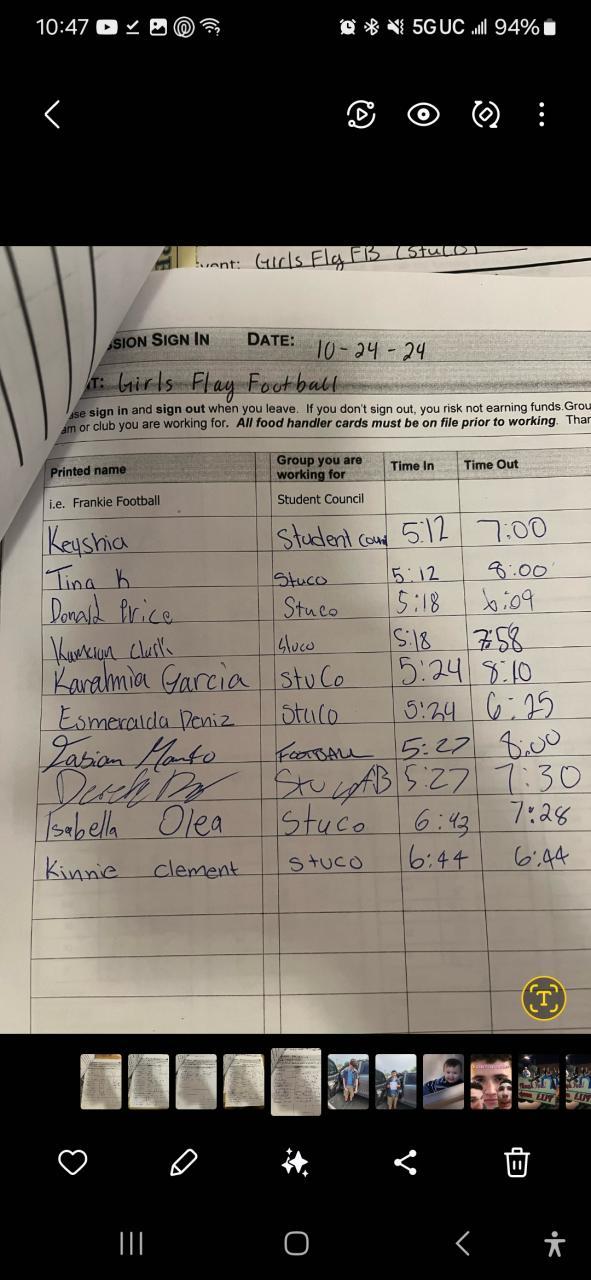 10:47 5GUC 94%
Event: Girls Flg FB (Stuco)
SSION SIGN IN DATE: 10-24-24
T: Girls Flay Football
ase sign in and sign out when you leave. If you don't sign out, you risk not earning funds.Grou
am or club you are working for. All food handler cards must be on file prior to working. Than
Printed name Group you are working for Time In Time Out
i.e. Frankie Football Student Council
Keyshia Student coun 5:12 7:00
Tina K Stuco 5:12 8:00
Donald Price Stuco 5:18 6:09
Stuco 5:18 7:58
Karalmia Garcia StuCo 5:24 8:10
Esmeralda Deniz StuCo 5:24 6:25
FOOTBALL 5:27 8:00
Derek 5:27 7:30
Isabella Olea Stuco 6:43 7:28
Kinnie clement stuco 6:44 6:44
T